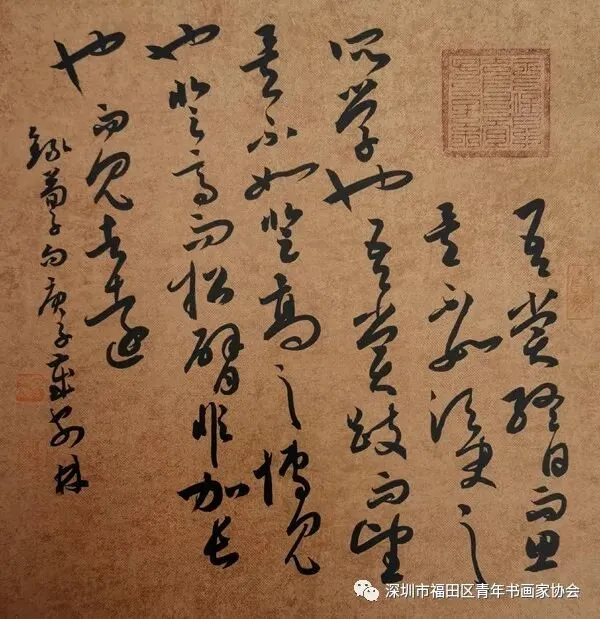 吾嘗終日而思
矣不如須臾之
所學也吾嘗跂而望
矣不如登高之博見
也登高而招臂非加長
也而見者遠
錄荀子句庚子林
深圳市福田区青年书画家协会